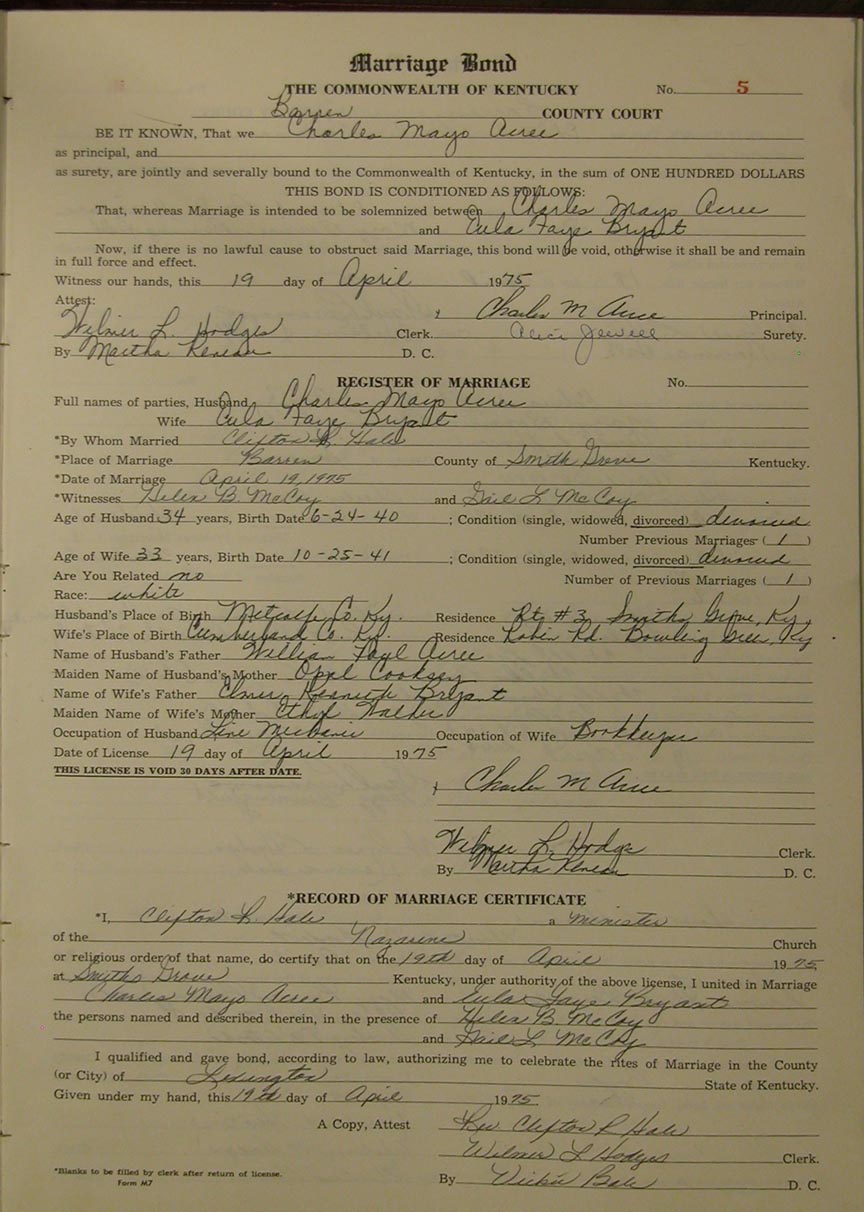 Marriage Bond
THE COMMONWEALTH OF KENTUCKY No. 5
Barren COUNTY COURT
BE IT KNOWN, That we Charles Mayo Acree
as principal, and
as surety, are jointly and severally bound to the Commonwealth of Kentucky, in the sum of ONE HUNDRED DOLLARS
THIS BOND IS CONDITIONED AS FOLLOWS:
That, whereas Marriage is intended to be solemnized between Charles Mayo Acree
and Eula Faye Bryant
Now, if there is no lawful cause to obstruct said Marriage, this bond will be void, otherwise it shall be and remain
in full force and effect.
Witness our hands, this 19 day of April 1975
Attest: Charles M Acree Principal.
Wilmer L. Hodges Clerk. Alice Jewell Surety.
By Martha Reneau D. C.
REGISTER OF MARRIAGE No.
Full names of parties, Husband Charles Mayo Acree
Wife Eula Faye Bryant
*By Whom Married Clifton R. Hale
*Place of Marriage Barren County of Smith Grove Kentucky.
*Date of Marriage April 19, 1975
*Witnesses Helen B. McCoy and Gail L McCoy
Age of Husband 34 years, Birth Date 6-24-40 ; Condition (single, widowed, divorced) divorced
Number Previous Marriages (1)
Age of Wife 33 years, Birth Date 10-25-41 ; Condition (single, widowed, divorced) divorced
Are You Related no Number of Previous Marriages (1)
Race: white
Husband's Place of Birth Metcalfe Co. Ky. Residence Rt. #3, Smiths Grove, Ky.
Wife's Place of Birth Cumberland Co. Ky. Residence Robin Rd. Bowling Green, Ky
Name of Husband's Father William Acree
Maiden Name of Husband's Mother Opal Cooksey
Name of Wife's Father Elmer Kenneth Bryant
Maiden Name of Wife's Mother Walker
Occupation of Husband Line Mechanic Occupation of Wife Bookkeeper
Date of License 19 day of April 1975
THIS LICENSE IS VOID 30 DAYS AFTER DATE.
Charles M Acree
Wilmer L. Hodges Clerk.
By Martha Reneau D. C.
*RECORD OF MARRIAGE CERTIFICATE
*I, Clifton R. Hale a minister
of the Nazarene Church
or religious order of that name, do certify that on the 19th day of April 1975,
at Smiths Grove Kentucky, under authority of the above license, I united in Marriage
Charles Mayo Acree and Eular Faye Bryant
the persons named and described therein, in the presence of Helen B. McCoy
and Gail L McCoy
I qualified and gave bond, according to law, authorizing me to celebrate the rites of Marriage in the County
(or City) of Lexington State of Kentucky.
Given under my hand, this 19th day of April 1975
A Copy, Attest Rev Clifton R Hale
Wilmer L Hodges Clerk.
*Blanks to be filled by clerk after return of license.
Form M7
By Vickie Bale D. C.